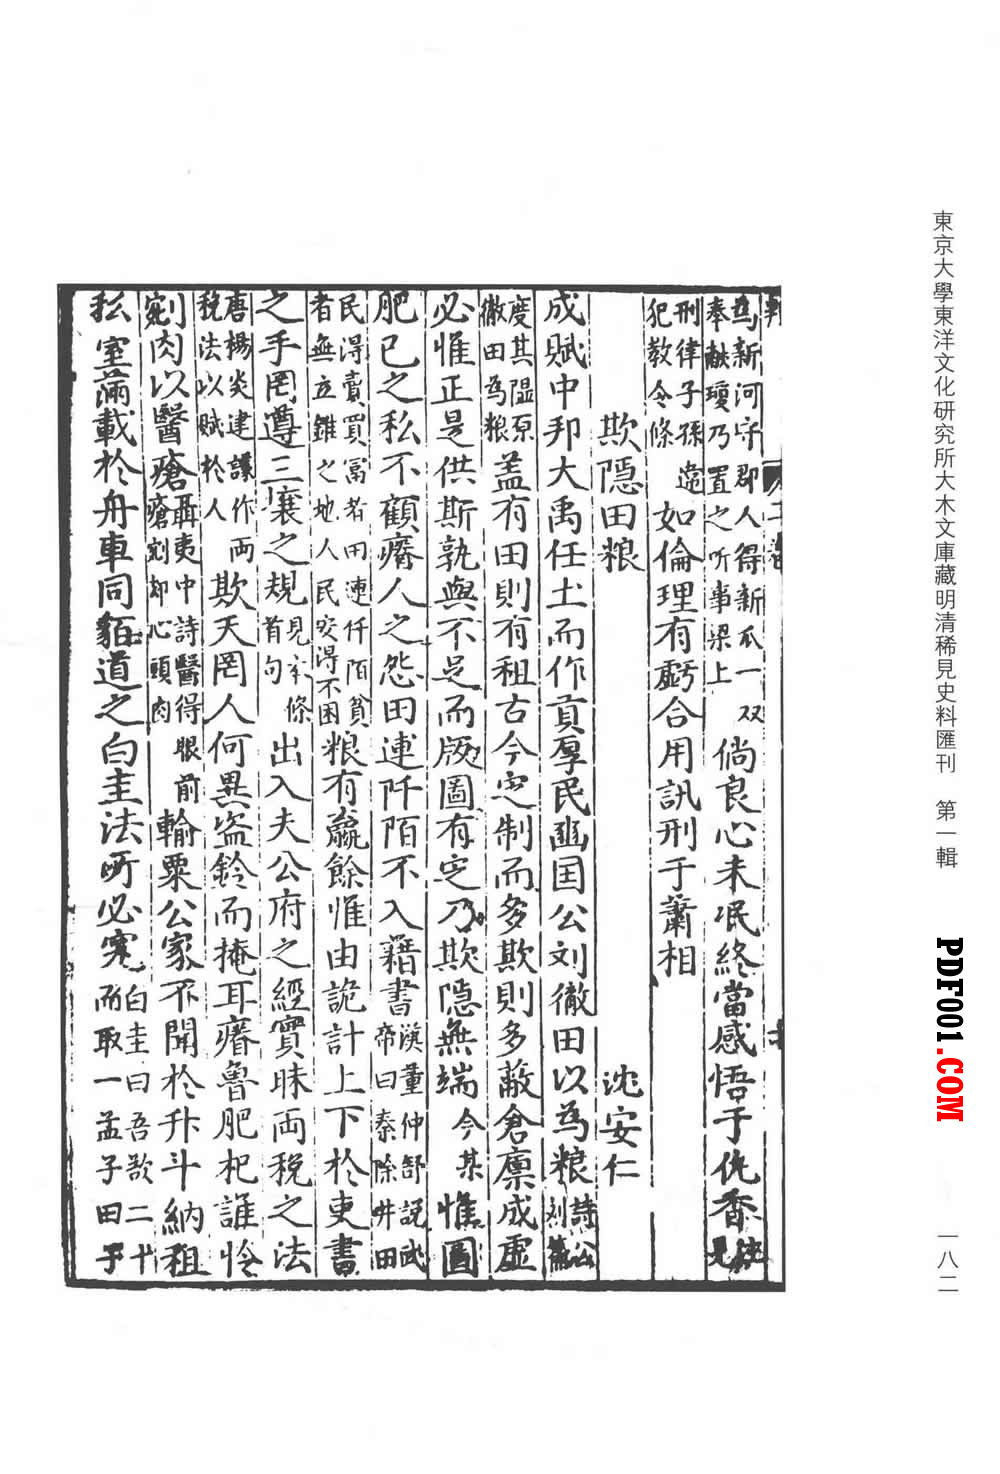 東京大學東洋文化研究所大木文庫藏明清稀見史料匯刊 第一輯
一八二
PDF001.COM
為新河守郡人得新瓜一双
奉献瓊乃置之听事梁上
倘良心未泯終當感悟于仇香
刑律子孫違
犯教令條
如倫理有虧合用訊刑于蕭相
欺隱田粮 沈安仁
成賦中邦大禹任土而作貢厚民豳国公刘徹田以為粮詩公刘篇
度其隰原
徹田為粮
盖有田則有租古今定制而多欺則多蔽倉廪成虚
必惟正是供斯孰與不足而版圖有定乃欺隱無端今某惟圖
肥己之私不顧瘠人之怨田連阡陌不入籍書
漢董仲舒説武
帝曰秦除井田
民得賣買冨者田連仟陌貧
者無立錐之地人民安得不困
粮有羸餘惟由詭計上下於吏書
之手罔遵三壤之規
見本條
首句
出入夫公府之經實昧両税之法
唐楊炎建議作両
税法以賦於人
欺天罔人何異盗鈴而掩耳瘠魯肥杞誰怜
剜肉以醫瘡
聶夷中詩醫得眼前
瘡剜却心頭肉
輸粟公家不聞於升斗納租
私室滿載於舟車同貊道之白圭法所必寃
白圭曰吾欲二十
而取一孟子曰子